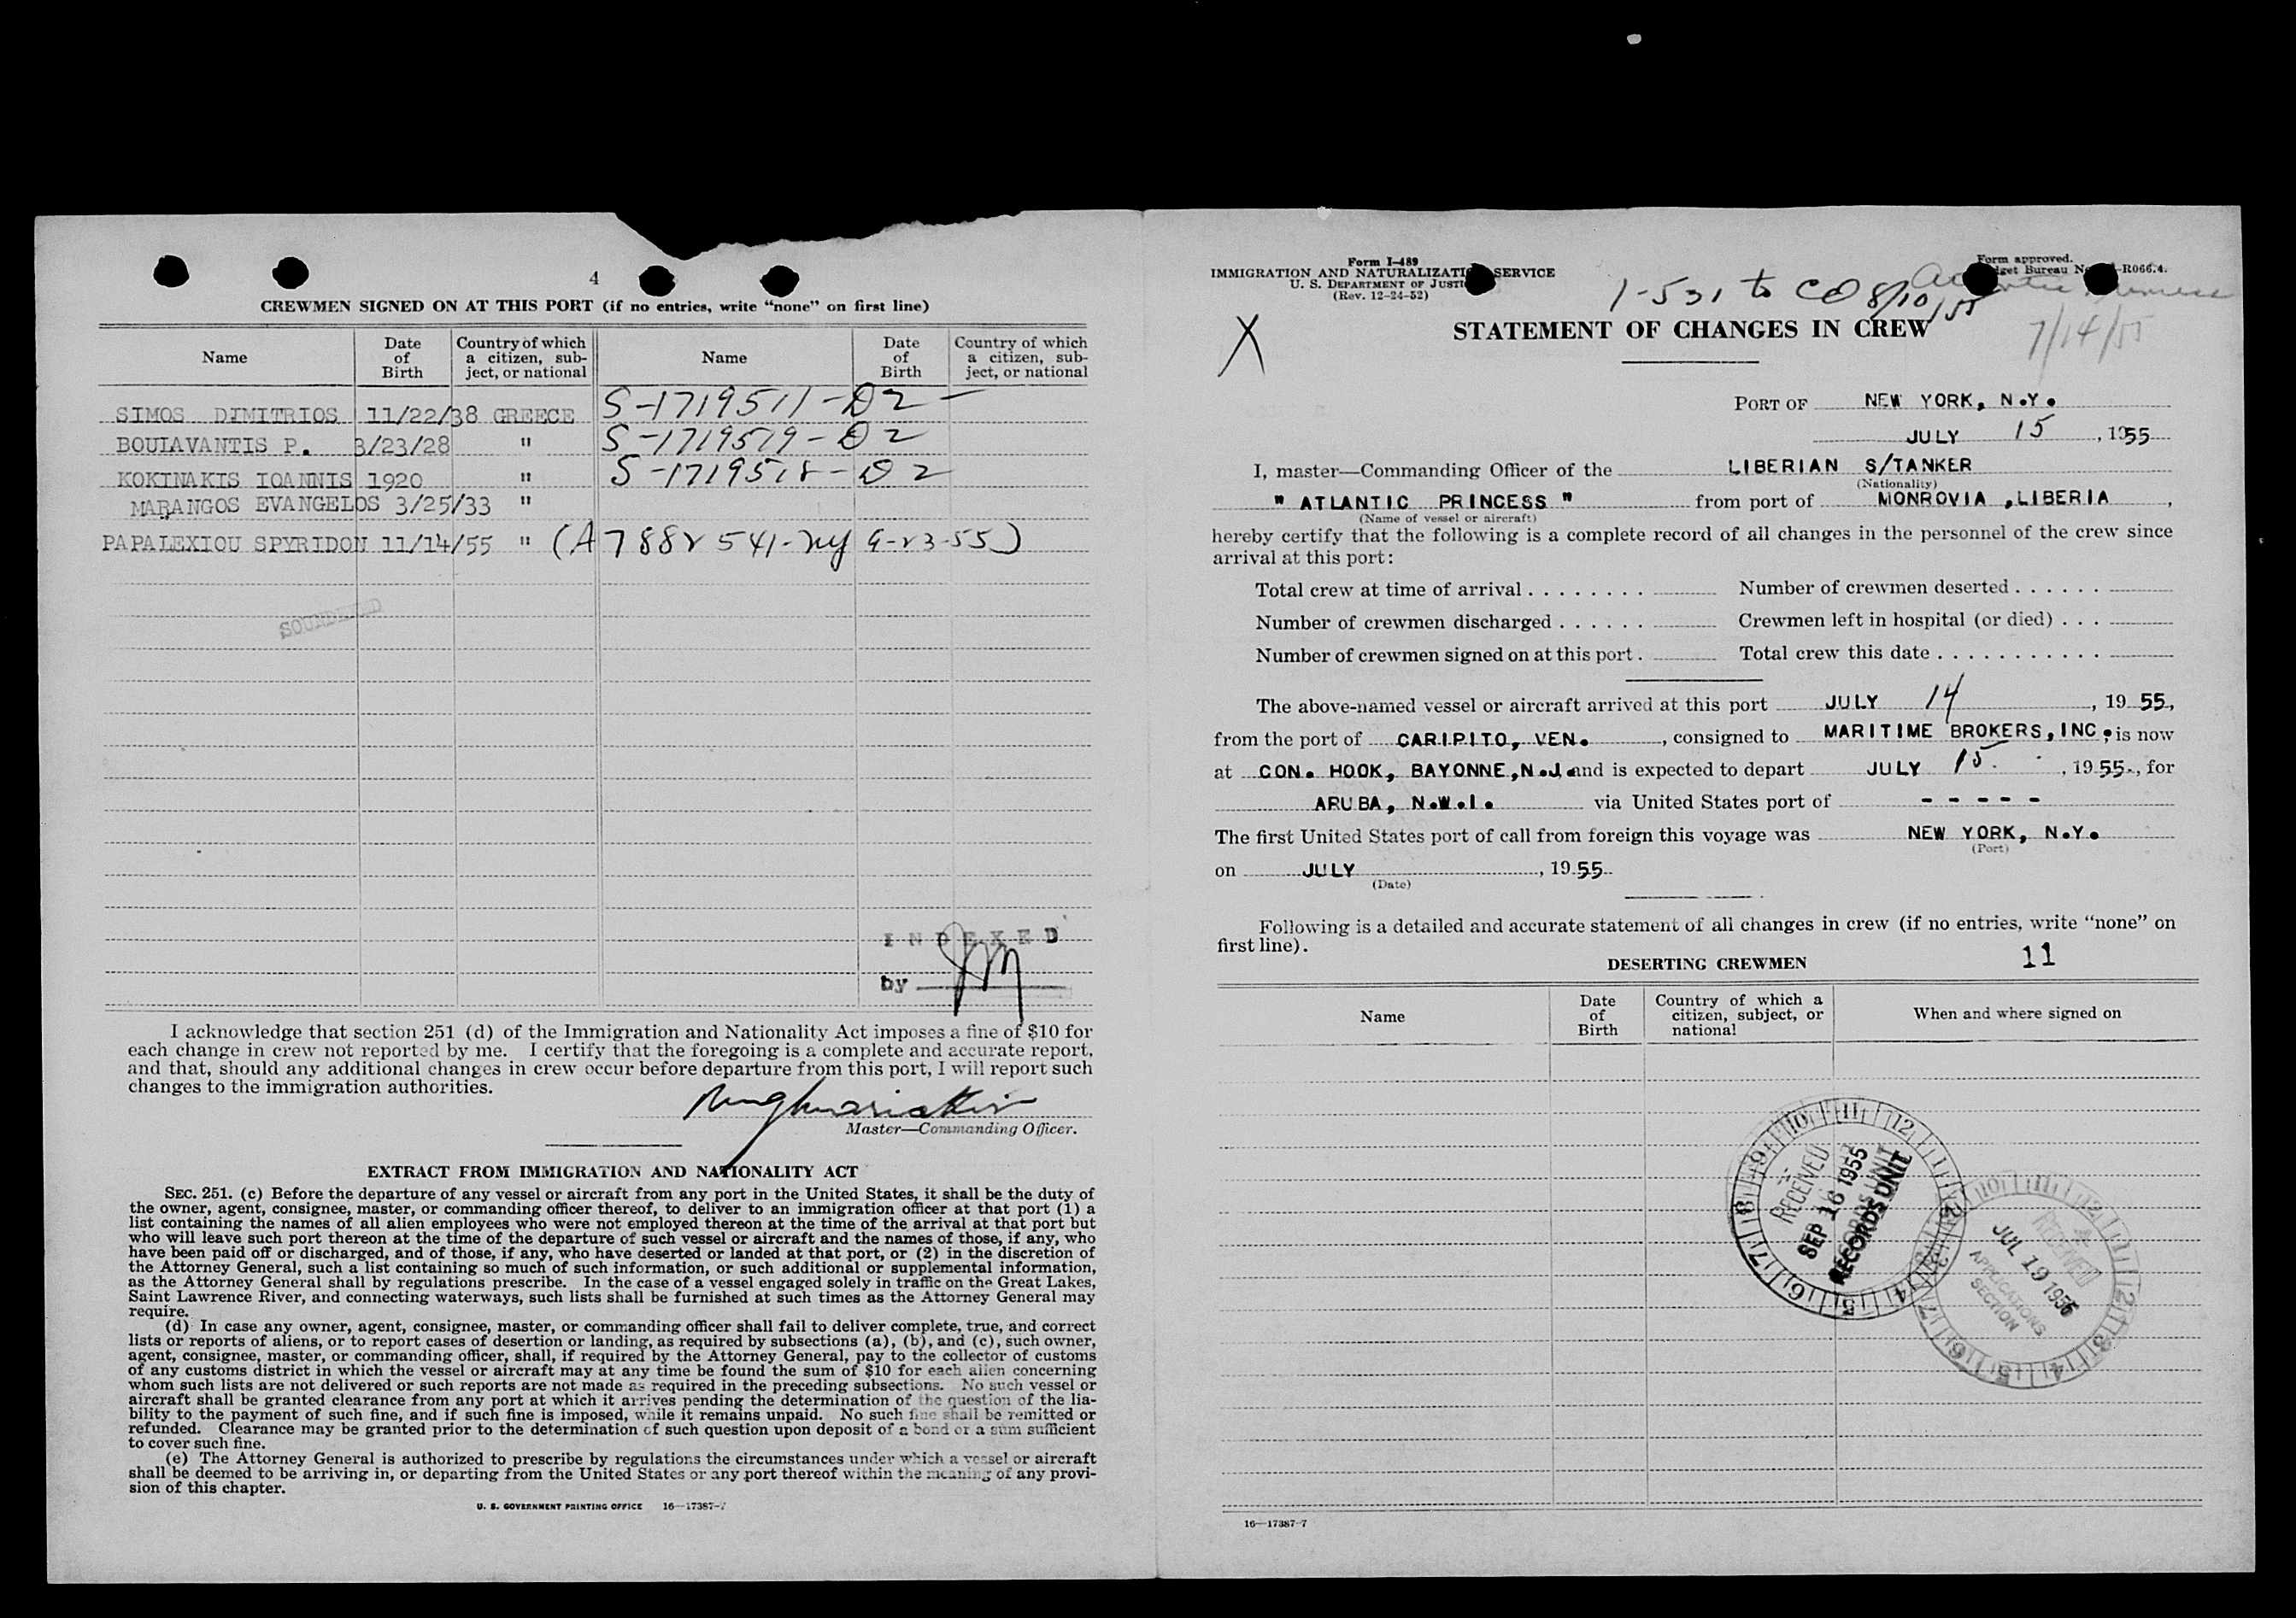 4
CREWMEN SIGNED ON AT THIS PORT (if no entries, write “none” on first line)
Name
Date of Birth
Country of which a citizen, sub-ject, or national
Name
Date of Birth
Country of which a citizen, sub-ject, or national
SIMOS DIMITRIOS 11/22/38 GREECE S-1719511-D2-
BOULAVANTIS P. 3/23/28 " S-1719519-D2
KOKINAKIS IOANNIS 1920 " S-1719518-D2
MARANGOS EVANGELOS 3/25/33 "
PAPALEXIOU SPYRIDON 11/14/55 " (A7882541-ny 9-23-55)
INDEXED
by
I acknowledge that section 251 (d) of the Immigration and Nationality Act imposes a fine of $10 for
each change in crew not reported by me. I certify that the foregoing is a complete and accurate report,
and that, should any additional changes in crew occur before departure from this port, I will report such
changes to the immigration authorities.
Master—Commanding Officer.
EXTRACT FROM IMMIGRATION AND NATIONALITY ACT
SEC. 251. (c) Before the departure of any vessel or aircraft from any port in the United States, it shall be the duty of
the owner, agent, consignee, master, or commanding officer thereof, to deliver to an immigration officer at that port (1) a
list containing the names of all alien employees who were not employed thereon at the time of the arrival at that port but
who will leave such port thereon at the time of the departure of such vessel or aircraft and the names of those, if any, who
have been paid off or discharged, and of those, if any, who have deserted or landed at that port, or (2) in the discretion of
the Attorney General, such a list containing so much of such information, or such additional or supplemental information,
as the Attorney General shall by regulations prescribe. In the case of a vessel engaged solely in traffic on the Great Lakes,
Saint Lawrence River, and connecting waterways, such lists shall be furnished at such times as the Attorney General may
require.
(d) In case any owner, agent, consignee, master, or commanding officer shall fail to deliver complete, true, and correct
lists or reports of aliens, or to report cases of desertion or landing, as required by subsections (a), (b), and (c), such owner,
agent, consignee, master, or commanding officer, shall, if required by the Attorney General, pay to the collector of customs
of any customs district in which the vessel or aircraft may at any time be found the sum of $10 for each alien concerning
whom such lists are not delivered or such reports are not made as required in the preceding subsections. No such vessel or
aircraft shall be granted clearance from any port at which it arrives pending the determination of the question of the lia-
bility to the payment of such fine, and if such fine is imposed, while it remains unpaid. No such fine shall be remitted or
refunded. Clearance may be granted prior to the determination of such question upon deposit of a bond or a sum sufficient
to cover such fine.
(e) The Attorney General is authorized to prescribe by regulations the circumstances under which a vessel or aircraft
shall be deemed to be arriving in, or departing from the United States or any port thereof within the meaning of any provi-
sion of this chapter.
U. S. GOVERNMENT PRINTING OFFICE 16—17387-7
Form I-489
IMMIGRATION AND NATURALIZATI SERVICE
U. S. DEPARTMENT OF JUSTI
(Rev. 12-24-52)
Form approved.
get Bureau N -R066.4.
1-531 to CO 8/10/55
7/14/55
X
STATEMENT OF CHANGES IN CREW
PORT OF NEW YORK, N.Y.
JULY 15, 1955
I, master—Commanding Officer of the LIBERIAN S/TANKER
(Nationality)
" ATLANTIC PRINCESS " from port of MONROVIA ,LIBERIA,
(Name of vessel or aircraft)
hereby certify that the following is a complete record of all changes in the personnel of the crew since
arrival at this port:
Total crew at time of arrival . . . . . . . . Number of crewmen deserted . . . . . .
Number of crewmen discharged . . . . . . Crewmen left in hospital (or died) . . .
Number of crewmen signed on at this port . Total crew this date . . . . . . . . . . .
The above-named vessel or aircraft arrived at this port JULY 14, 19 55,
from the port of CARIPITO, VEN., consigned to MARITIME BROKERS,INC.; is now
at CON. HOOK, BAYONNE,N.J. and is expected to depart JULY 15., 19 55., for
ARUBA, N.W.I. via United States port of - - - - -
The first United States port of call from foreign this voyage was NEW YORK, N.Y.
(Port)
on JULY, 19 55
(Date)
Following is a detailed and accurate statement of all changes in crew (if no entries, write “none” on
first line).
DESERTING CREWMEN 11
Name
Date of Birth
Country of which a citizen, subject, or national
When and where signed on
RECEIVED
SEP 16 1955
RECORDS UNIT
RECEIVED
JUL 19 1955
APPLICATIONS
SECTION
16—17387-7